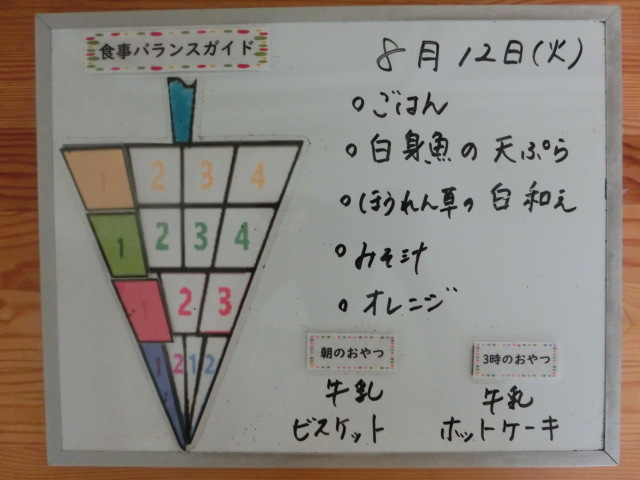 食事バランスガイド
8月12日(火)
ごはん
白身魚の天ぷら
ほうれん草の白和え
みそ汁
オレンジ
1 2 3 4
1 2 3 4
1 2 3
1 2 1 2
朝のおやつ
牛乳
ビスケット
3時のおやつ
牛乳
ホットケーキ